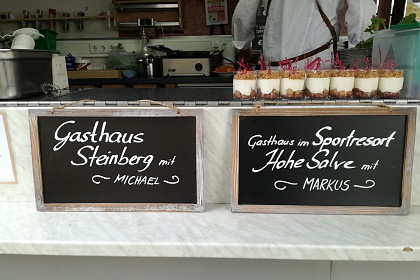 Gasthaus
Steinberg mit
~ MICHAEL ~
Gasthaus im Sportresort
Hohe Salve mit
~ MARKUS ~